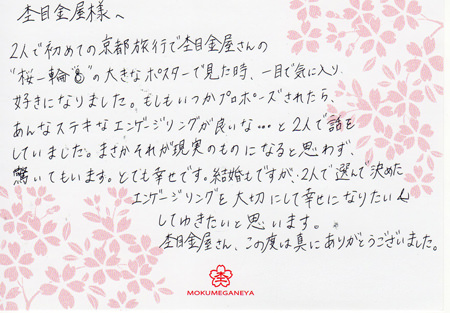 杢目金屋様へ
2人で初めての京都旅行で杢目金屋さんの
"桜一輪"の大きなポスターで見た時、一目で気に入り
好きになりました。もしもいつかプロポーズされたら、
あんなステキなエンゲージリングが良いな…と2人で話を
していました。まさかそれが現実のものになると思わず、
驚いてもいます。とても幸せです。結婚もですが、2人で選んで決めた
エンゲージリングを大切にして幸せになりたい
してゆきたいと思います。
杢目金屋さん、この度は真にありがとうございました。
杢
MOKUMEGANEYA